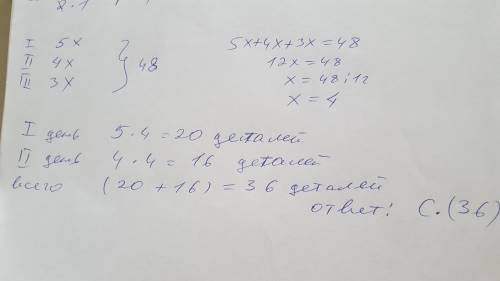 2.1
I 5x
II 4x } 48
III 3x
5x+4x+3x=48
12x=48
x=48:12
x=4
I день 5·4=20 деталей
II день 4·4=16 деталей
всего (20+16)=36 деталей
ответ: C.(36)